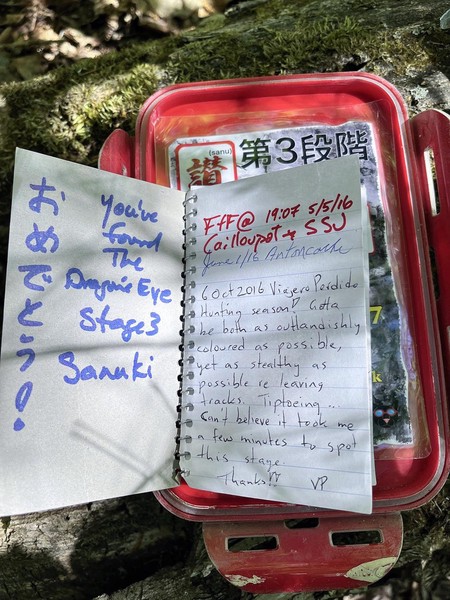 (sanu)
讃
第3段階
おめでとう!
You've
found
The
Dragon's Eye
Stage3
Sanuki
FFF@ 19:07 5/5/16
Cailloupot + SSU
June 1/16 Antoncache
6 Oct 2016 Viajero Perdido
Hunting season! Gotta
be both as outlandishly
coloured as possible,
yet as stealthy as
possible re leaving
tracks. Tiptoeing..
Can't believe it took me
a few minutes to spot
this stage.
Thanks!! VP
7
k